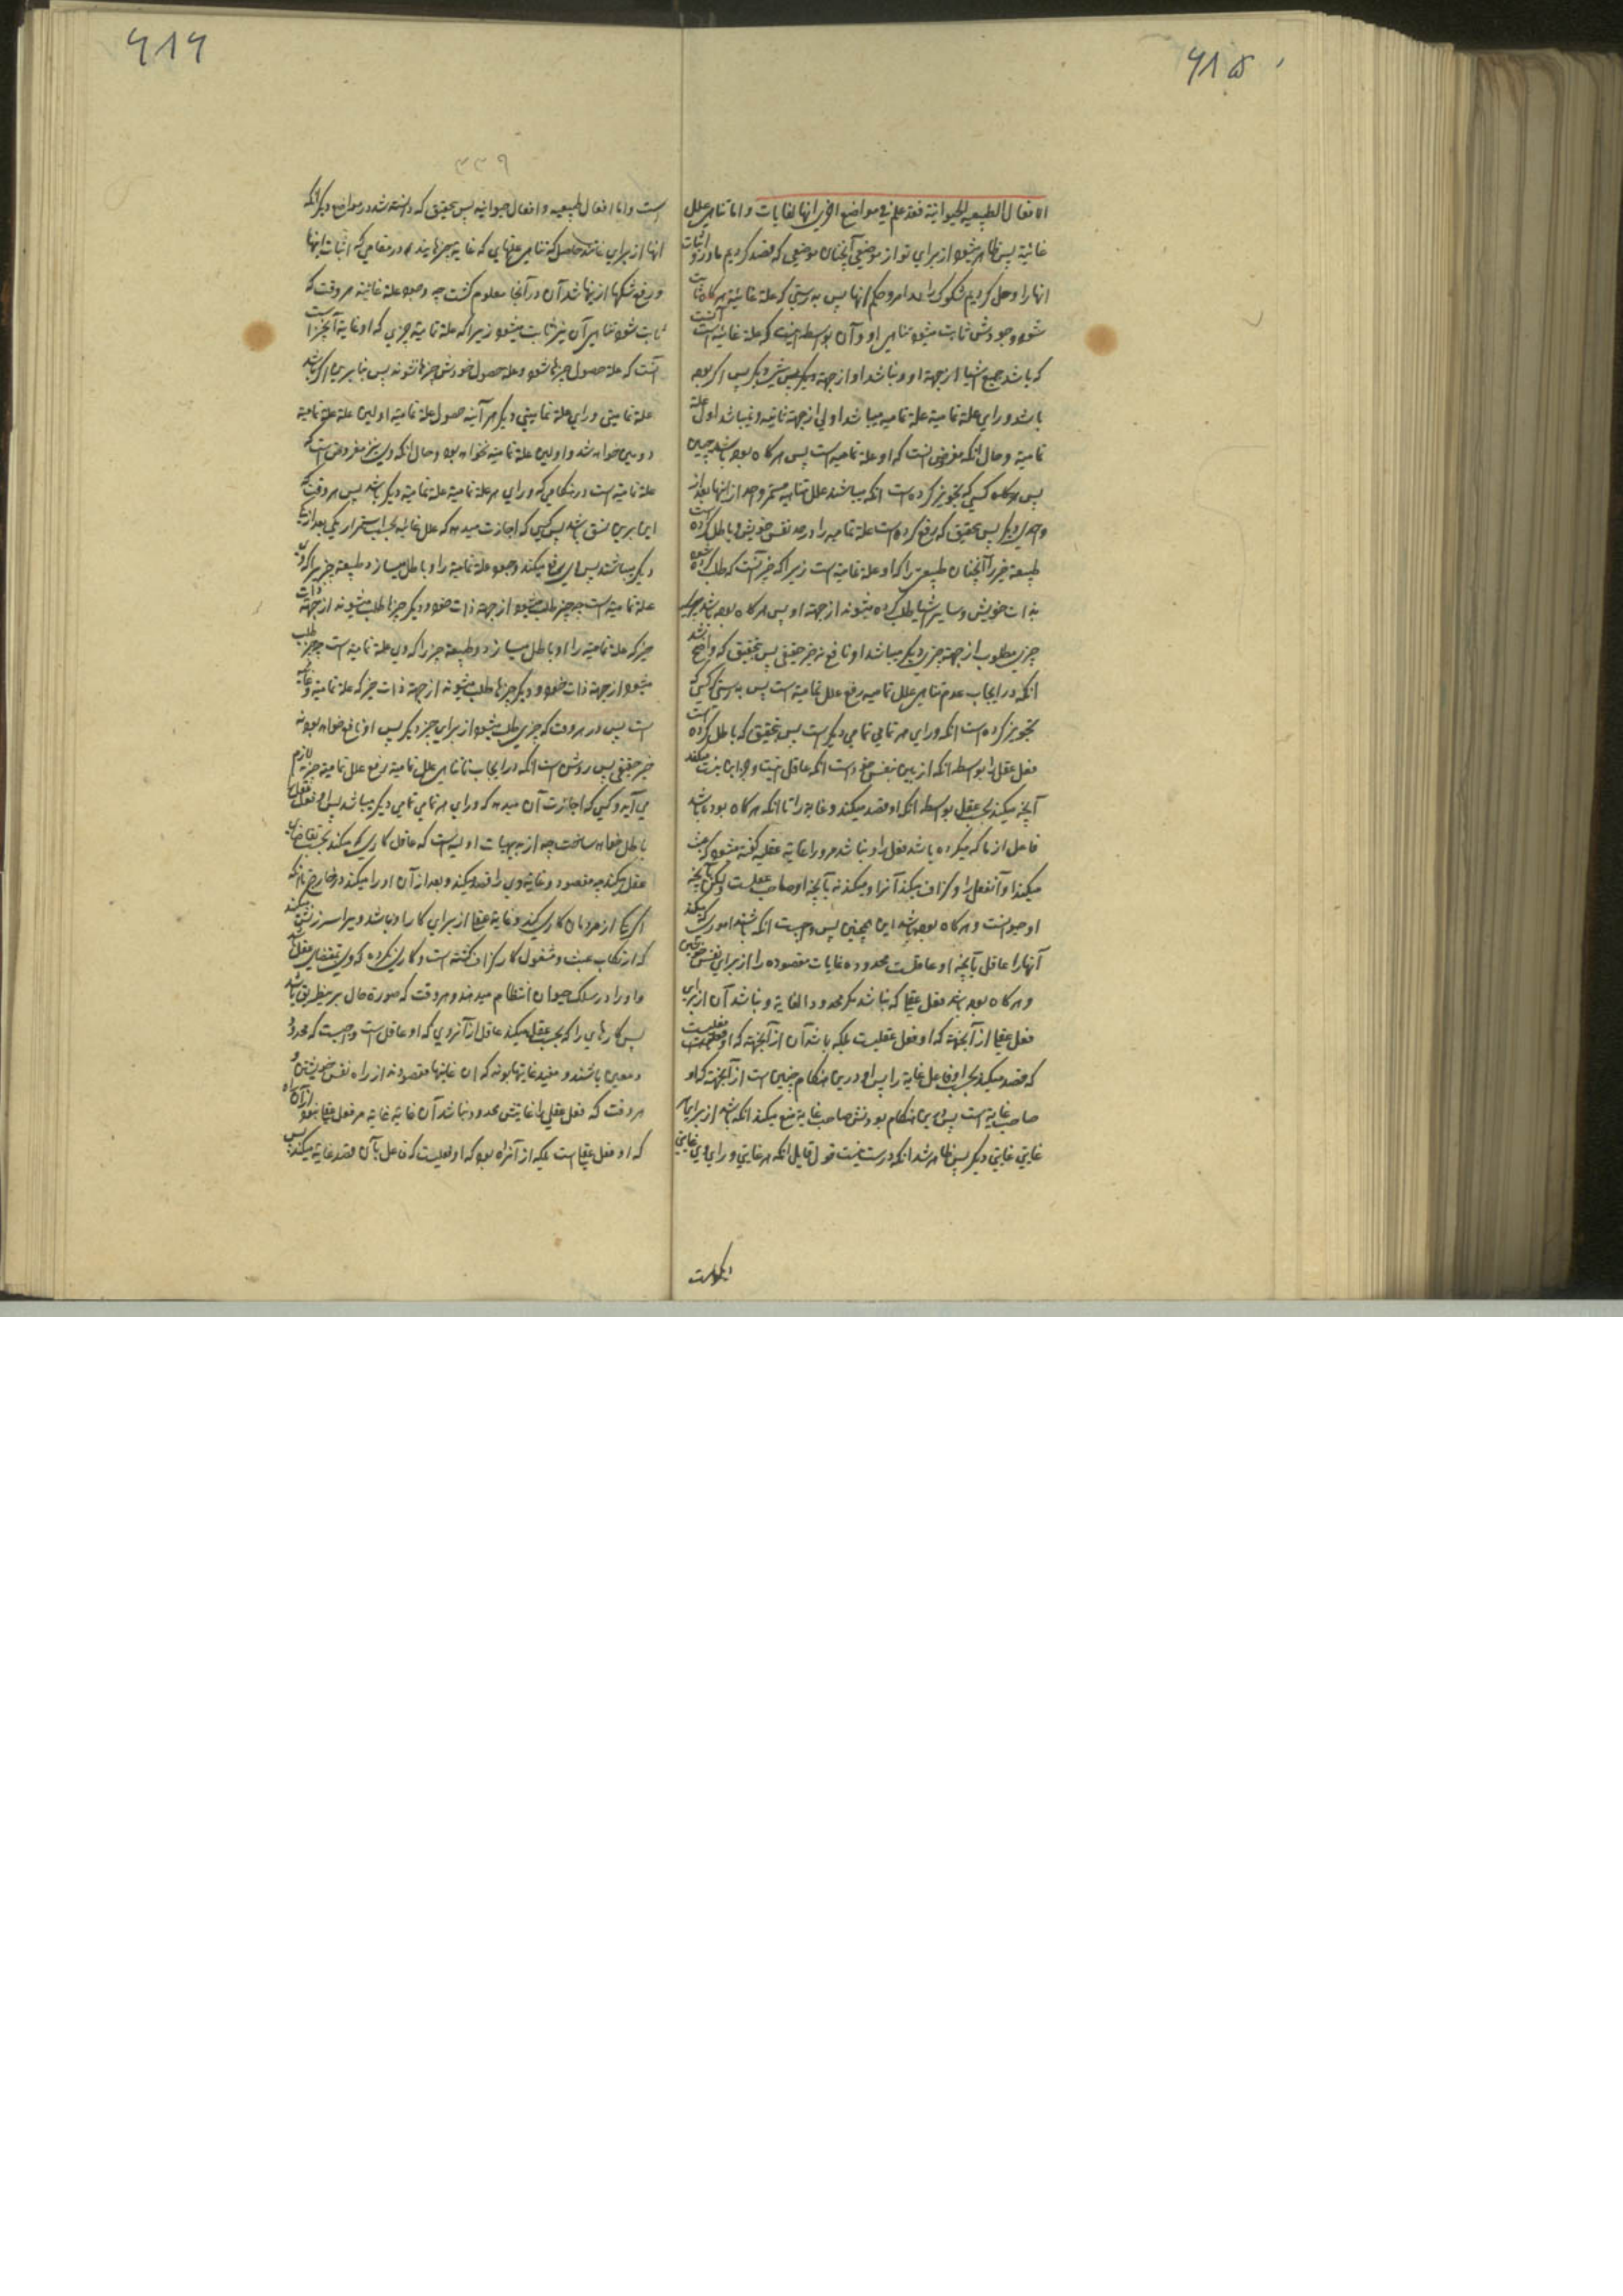 ۶۱۵
الافعال الطبیعیه والحیوانیة فقد علم فی مواضع اخری انها لغایات و اما تناهی علل
غائیة پس ظاهر میشود از برای تو از موضعی آنچنان موضعی که قصد کردیم ما در او اثبات
انها را و حل کردیم شکوک را و حکم انها پس بدرستی که علة غائیة هرگاه ثابت
شود وجودش ثابت میشود تناهی او و آن بواسطه اینست که علة غائیه آنست
که باشد جمیع اشیا از جهة او و نباشد او از جهة دیگر پس اگر بود
باشد ورای علة تمامیة علة تمامیه میباشد اولی از جهة ثانیه و نمیباشد اول علة
تمامیة و حال انکه مفروض انست که او علة تمامیه است پس هرگاه بوده باشد چنین
پس هرگاه کسی که تجویز کرده است انکه میباشند علل تمامیه مستمر واحد از انها بعد از
واحدی دیگر پس بتحقیق که رفع کرده است علة تمامیه را در حد نفس خویش و باطل کرده است
طبیعة خیر را آنچنان طبیعتی را که او علة تمامیة است زیرا که خیر آنست که طلب کرده شود
بذات خویش و سایر اشیا طلب کرده میشوند از جهة او پس هرگاه بوده باشد
چیزی مطلوب از جهة چیزی دیگر میباشد او نافع نه خیر حقیقی پس بتحقیق که واضح شد
انکه در ایجاب عدم تناهی علل تمامیه رفع علل تمامیة است پس بدرستی که کسی که
تجویز کرده است انکه ورای هر تمامی تمامی دیگر است پس بتحقیق که باطل کرده است
فعل عقل را بواسطه انکه از بین بنفس خود است انکه عاقل
آنچه میکند بعقل بواسطه انکه او قصد میکند و غایة را تا انکه هرگاه بوده باشد
فاعل از ما که میکرده باشد فعل را و نباشد مر او را غایة عقلیه گفته میشود که عبث
میکند او آنفعل را و گزاف میکند آنرا و میکند نه بآنچه او صاحب عقلست ولیکن بآنچه
او حیوانست و هرگاه بوده باشد این همچنین پس واجبست انکه باشند اموری که میکند
آنها را عاقل بآنچه او عاقلست محدوده غایات مقصوده را از برای نفس خویش
و هرگاه بوده باشد فعل عقلی که نباشد مگر محدود الغایة و نباشد آن از برای
فعل عقلی از آنجهة که او فعل عقلیست بلکه باشد آن از آنجهة که او فعلیست
که قصد میکند بسبب او فاعل غایة را پس او درین هنگام چنین است از آنجهت که او
صاحب غایة است پس درین هنگام بودنش صاحب غایة منع میکند انکه باشد از برای هر
غایتی غایتی دیگر پس ظاهر شد انکه درست نیست قول قایل انکه هر غایتی ورای وی غایتی
۶۱۶
۳۳۹
است و اما افعال طبیعیه و افعال حیوانیه پس بتحقیق که دانسته شد در مواضع دیگر انکه
انها از برای
و رفع شکها از نها شد آن در آنجا معلوم گشت چه وجود علة غائیه هر وقت که
ثابت شود تناهی آن نیز ثابت میشود زیرا که علة تمامیة چیزی که او غایة آنچیز است
آنست که علة حصول چیزها شود و علة حصول خودش چیزها نشوند پس بنابرین اگر باشد
علة تمامیتی ورای علة تمامیتی دیگر هر آینه حصول علة تمامیة اولین علة علة تمامیة
دومین خواهد شد و اولین علة تمامیة نخواهد بود و حال انکه وی نیز مفروض است که
علة تمامیة است در هنگامی که ورای هر علة تمامیة علة تمامیة دیگر باشد پس هر وقت که
این برین نسق باشد پس کسی که اجازت میدهد که علل غائیه بحسب استمرار یکی بعد از یکی
دیگر میباشند پس او رفع میکند وجود علة تمامیة را و باطل میسازد طبیعة چیزیرا که وی
علة تمامیة است چه چیز طلب میشود از جهة ذات خود و دیگر چیزها طلب میشوند از جهة ذات
خیر که علة تمامیة را او باطل میسازد و طبیعة خیر را که وی علة تمامیة است چه خیر طلب
میشود از جهة ذات خود و دیگر چیزها طلب میشوند از جهة ذات خیر که علة تمامیة و غایة
است پس در هر وقت که چیزی طلب میشود از برای چیز دیگر پس او نافع خواهد بود نه
خیر حقیقی پس روشن است انکه در ایجاب ناتناهی علل تمامیة رفع علل تمامیة خیریة لازم
می آید و کسی که اجازت آن میدهد که ورای هر تمامی تمامی دیگر میباشد پس او فعل عقل را
باطل خواهد ساخت چه از بدیهیات اولیه است که عاقل کاری که میکند بحسب تقاضای
عقل میکند چه مقصود و غایة وی را قصد میکند و بعد از آن او را میکند در خارج تا انکه
اگر یکی از مردمان کاری کند و غایة عقلی از برای کار او نباشد ویرا سرزنش میکند
که ارتکاب عبث و مشغول کار گزاف گشته است و کاری نکرده که وی بمقتضای عقل باشد
و او را در سلک حیوان انتظام میدهند و هر وقت که صورة حال بر اینطریق باشد
پس کارهای را که بحسب عقل میکند عاقل از آنروی که او عاقل است واجبست که محدود
و معین باشند و مفید غایتها بوند که ان غایتها مقصودند از راه نفس خویشتن و
هر وقت که فعل عقلی را غایتش محدود نباشد آن غایة غایة مر فعل عقلی نبود از آن راه
که او فعل عقلی است بلکه از آنراه بود که او فعلیست که فاعل بآن قصد غایة میکند پس